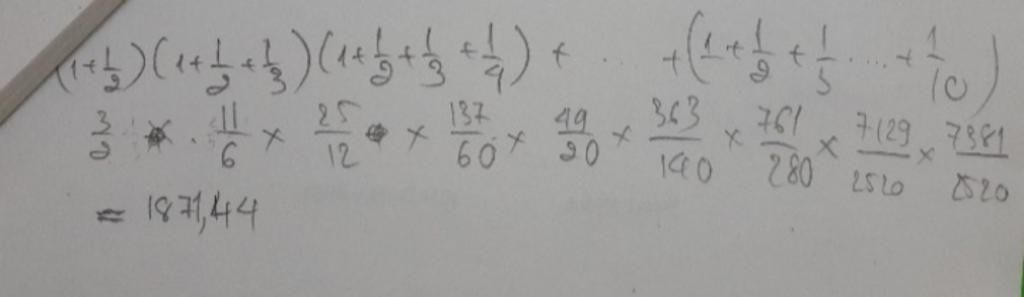 (1+1/2)(1+1/2+1/3)(1+1/2+1/3+1/4)+ .... +(1+1/2+1/3....+1/10)
3/2 . 11/6 × 25/12 × 137/60 × 49/20 × 363/140 × 761/280 × 7129/2520 × 7381/2520
= 1871,44